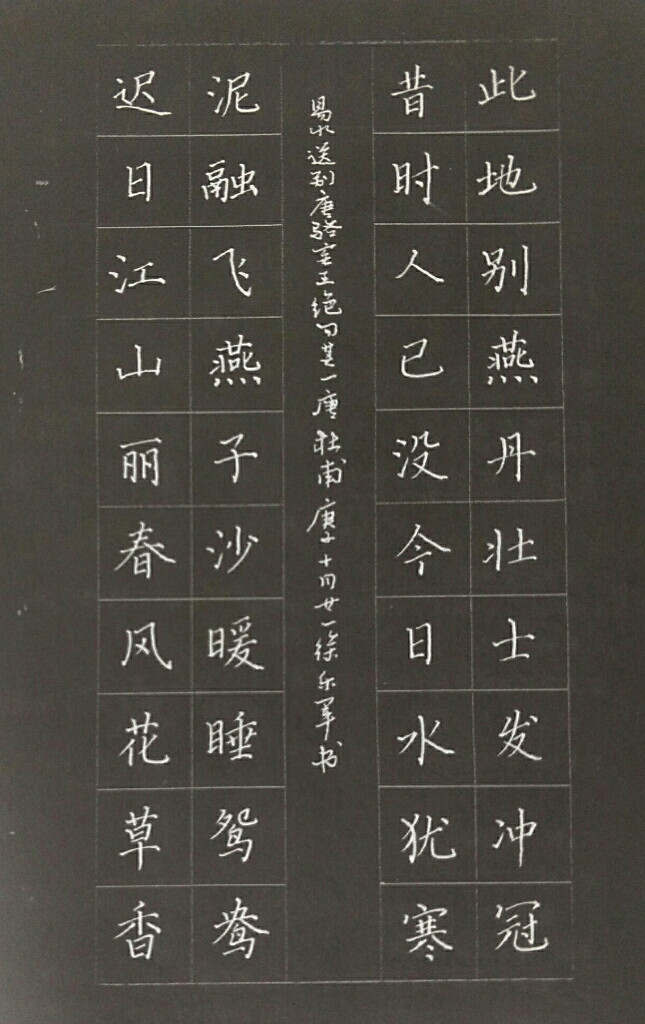 此地别燕丹壮士发冲冠
昔时人已没今日水犹寒
易水送别唐骆宾王绝句其一唐杜甫庚子十月廿一徐乐军书
泥融飞燕子沙暖睡鸳鸯
迟日江山丽春风花草香